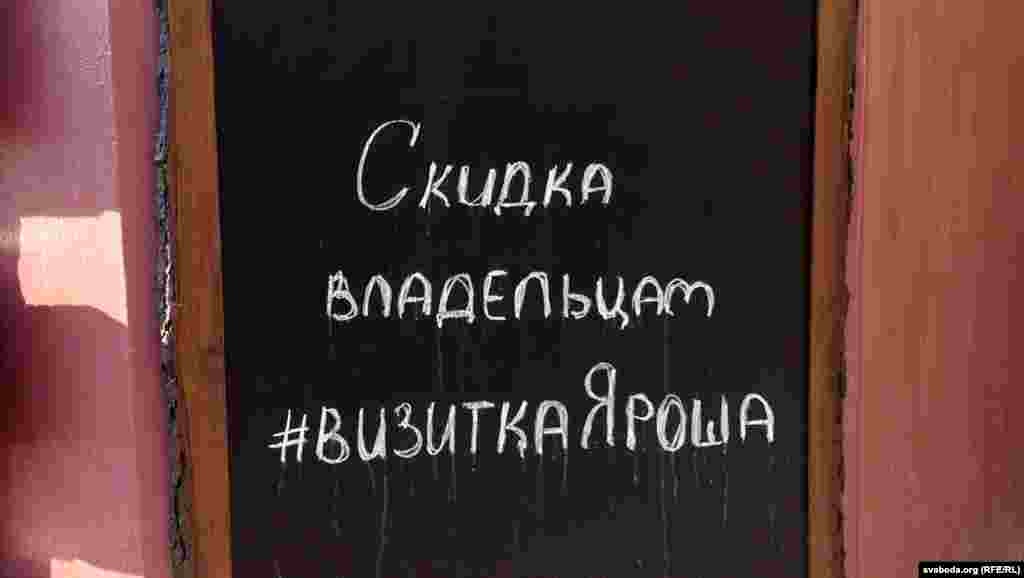 Скидка
владельцам
#визиткаЯроша
svaboda.org (RFE/RL)